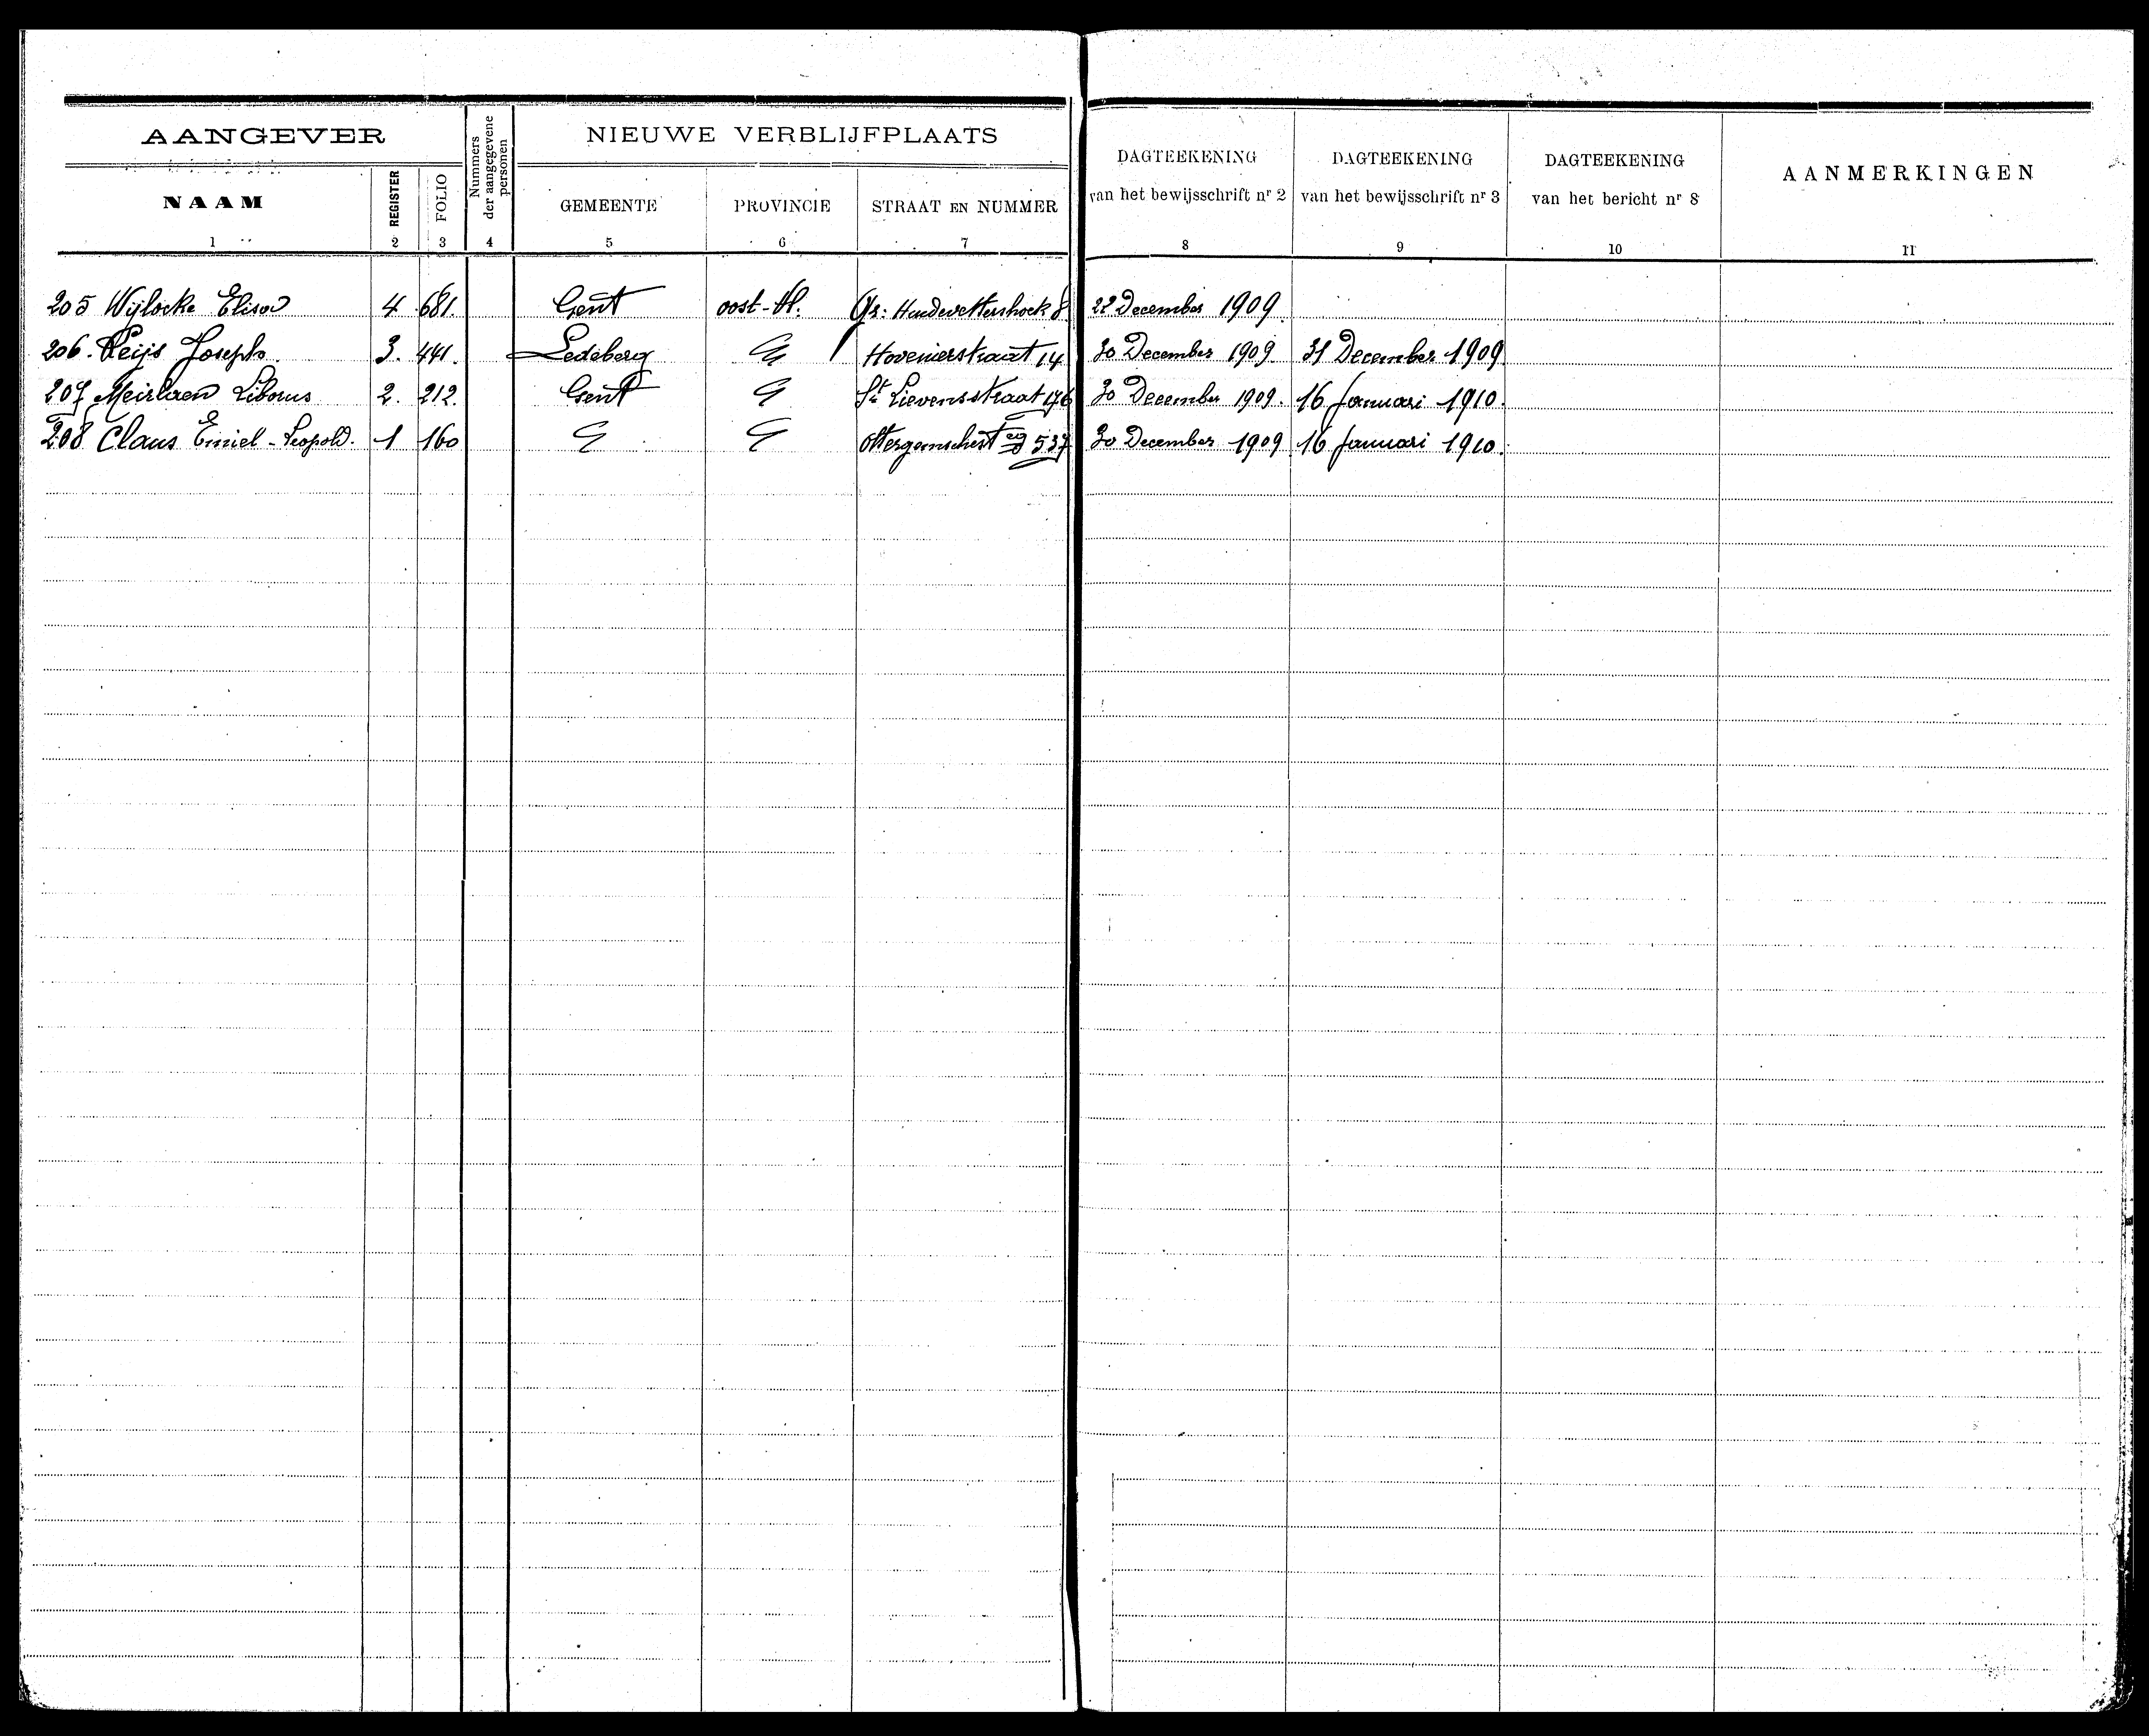 AANGEVER
Nummers der aangegevene personen
NIEUWE VERBLIJFPLAATS
DAGTEEKENING van het bewijsschrift nr 2
DAGTEEKENING van het bewijsschrift nr 3
DAGTEEKENING van het bericht nr 8
AANMERKINGEN
NAAM REGISTER FOLIO GEMEENTE PROVINCIE STRAAT EN NUMMER
1 2 3 4 5 6 7 8 9 10 11
205 Wijlocke Elisa 4 681. Gent oost-Vl. Gr: Huidevettershoek 8. 22 December 1909.
206. Peijs Joseph. 3. 441. Ledeberg Hovenierstraat 14 30 December 1909 31 December 1909
207 Meirlaen Liborus 2. 212. Gent St Lievensstraat 176 30 December 1909. 16 Januari 1910.
208 Claus Emiel-Leopold. 1 160 537 30 December 1909 16 Januari 1910.